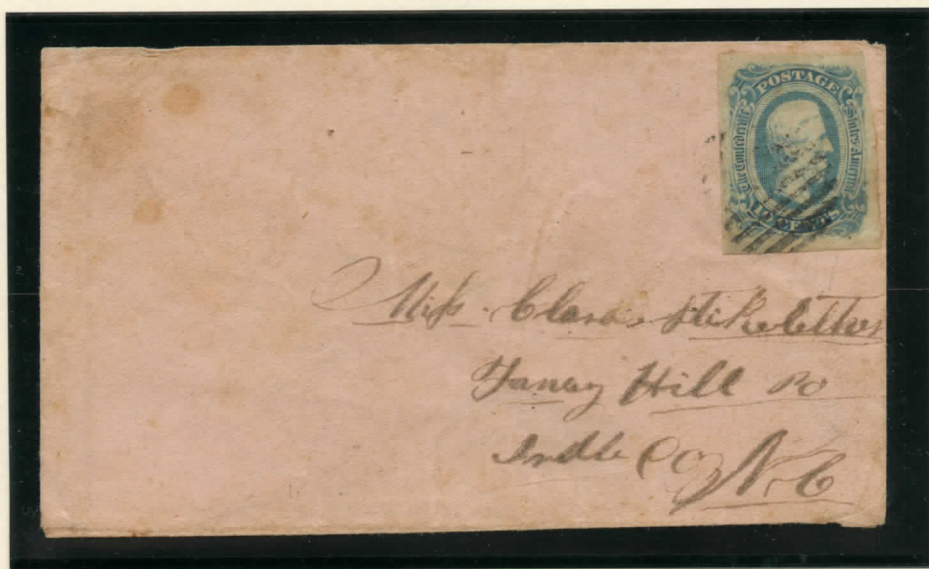 POSTAGE
The Confederate States America
10 CENTS
Miss. Clara Stikeletther
Fancy Hill Po
Iredle Co N.C